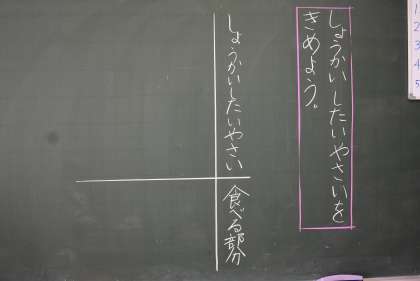 しょうかいしたいやさいを
きめよう。
しょうかいしたいやさい
食べる部分
1
2
3
4
5